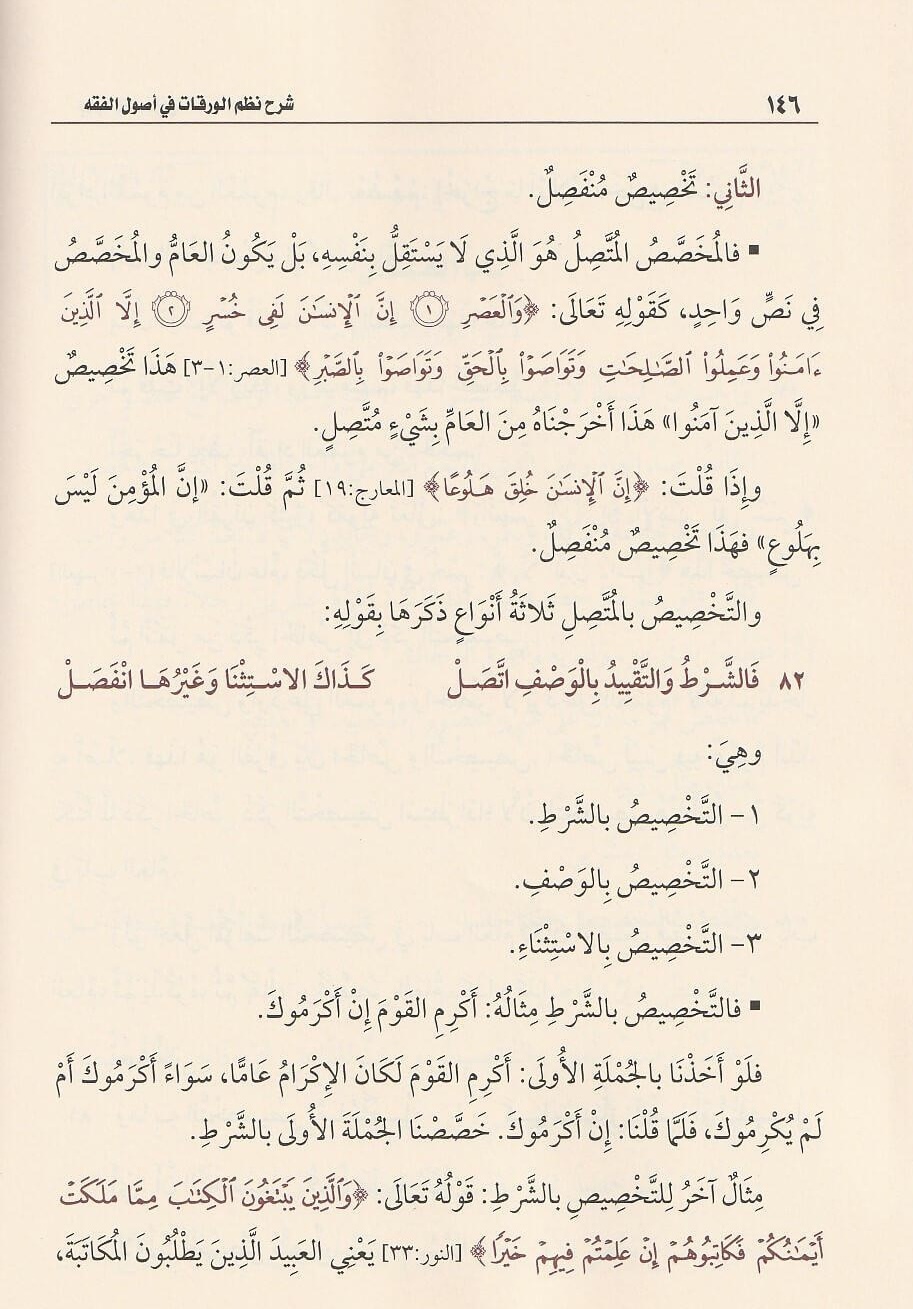 ١٤٦ شرح نظم الورقات في أصول الفقه
الثَّانِي: تَخْصِيصٌ مُنْفَصِلٌ.
▪ فالمُخَصَّصُ المُتَّصِلُ هُوَ الَّذِي لَا يَسْتَقِلُّ بِنَفْسِهِ، بَلْ يَكُونُ العَامُّ والمُخَصَّصُ
فِي نَصٍّ وَاحِدٍ، كَقَوْلِهِ تَعَالَى: ﴿وَٱلۡعَصۡرِ ۝١ إِنَّ ٱلۡإِنسَٰنَ لَفِي خُسۡرٍ ۝٢ إِلَّا ٱلَّذِينَ
ءَامَنُواْ وَعَمِلُواْ ٱلصَّٰلِحَٰتِ وَتَوَاصَوۡاْ بِٱلۡحَقِّ وَتَوَاصَوۡاْ بِٱلصَّبۡرِ﴾ [العصر:١-٣] هَذَا تَخْصِيصٌ
«إِلَّا الَّذِينَ آمَنُوا» هَذَا أَخْرَجْنَاهُ مِنَ العَامِّ بِشَيْءٍ مُتَّصِلٍ.
وإِذَا قُلْتَ: ﴿إِنَّ ٱلۡإِنسَٰنَ خُلِقَ هَلُوعًا﴾ [المعارج:١٩] ثُمَّ قُلْتَ: «إنَّ المُؤْمِنَ لَيْسَ
بِهَلُوعٍ» فهَذَا تَخْصِيصٌ مُنْفَصِلٌ.
والتَّخْصِيصُ بالمُتَّصِلِ ثَلاثَةُ أَنْوَاعٍ ذَكَرَهَا بِقَوْلِهِ:
٨٢ فَالشَّرْطُ وَالتَّقْيِيدُ بِالْوَصْفِ اتَّصَلْ كَذَاكَ الاسْتِثْنَا وَغَيْرُهَا انْفَصَلْ
وهِيَ:
١- التَّخْصِيصُ بالشَّرْطِ.
٢- التَّخْصِيصُ بِالوَصْفِ.
٣- التَّخْصِيصُ بِالاسْتِثْنَاءِ.
▪ فالتَّخْصِيصُ بالشَّرْطِ مِثَالُهُ: أَكْرِمِ القَوْمَ إِنْ أَكْرَمُوكَ.
فلَوْ أَخَذْنَا بالجُمْلَةِ الأُولَى: أَكْرِمِ القَوْمَ لَكَانَ الإِكْرَامُ عَامًّا، سَوَاءً أَكْرَمُوكَ أَمْ
لَمْ يُكْرِمُوكَ، فَلَمَّا قُلْنَا: إِنْ أَكْرَمُوكَ. خَصَّصْنَا الجُمْلَةَ الأُولَى بالشَّرْطِ.
مِثَالٌ آخَرُ لِلتَّخْصِيصِ بالشَّرْطِ: قَوْلُهُ تَعَالَى: ﴿وَٱلَّذِينَ يَبۡتَغُونَ ٱلۡكِتَٰبَ مِمَّا مَلَكَتۡ
أَيۡمَٰنُكُمۡ فَكَاتِبُوهُمۡ إِنۡ عَلِمۡتُمۡ فِيهِمۡ خَيۡرًا﴾ [النور:٣٣] يَعْنِي العَبِيدَ الَّذِينَ يَطْلُبُونَ المُكَاتَبَةَ،